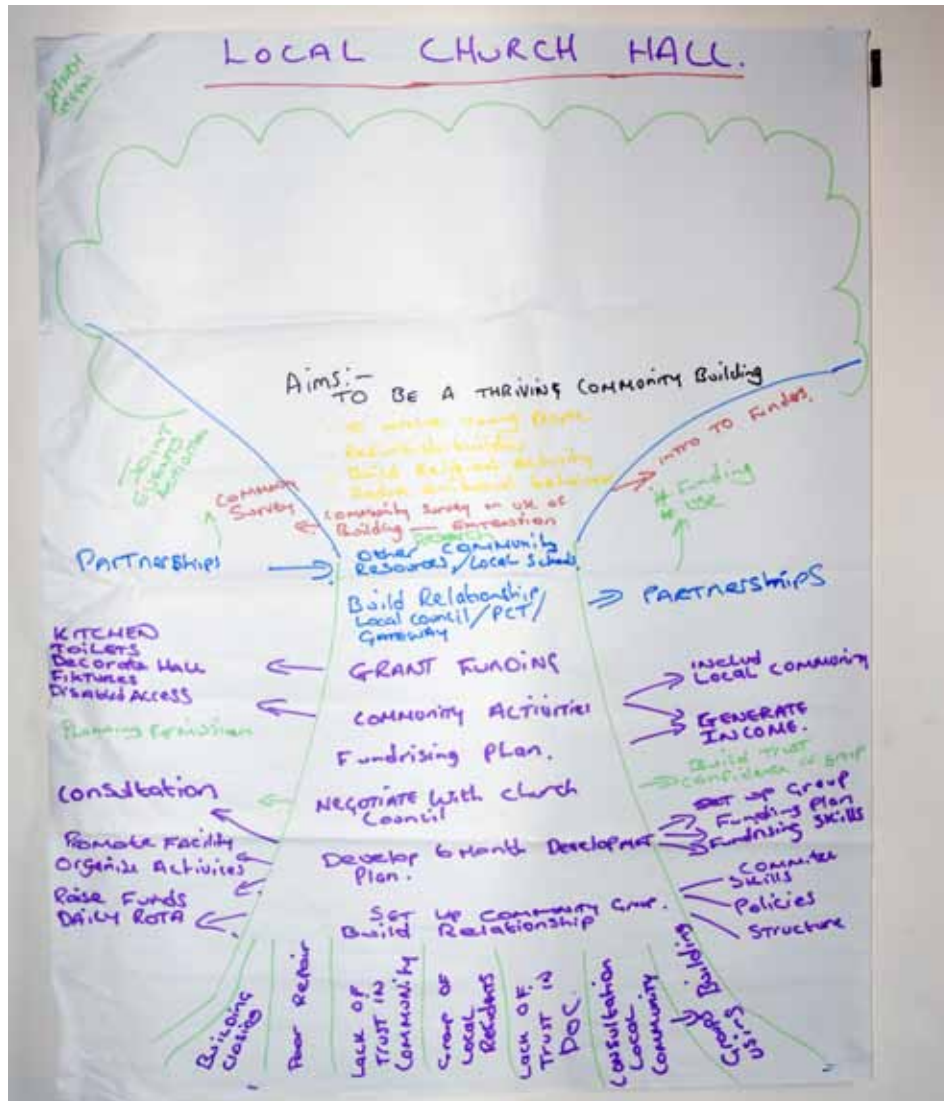 LOCAL CHURCH HALL.
Aims:-
TO BE A THRIVING COMMUNITY Building
INTRO TO Funders.
Young People
Build Relig on Activity
Community Survey on use of
Building — EXTENSION
Community
Survey
Funding
use
JOINT
Partnerships
Other Community
Resources/Local Schools
Build Relationship
Local council/PCT/
GATEWAY
PARTNERSHIPS
KITCHEN
TOILETS
Decorate Hall
FIXTURES
Disabled Access
GRANT FUNDING
Includ
Local Community
COMMUNITY ACTIVITIES
GENERATE
INCOME.
Planning Permission
Fundrising Plan.
Build Trust
Confidence
Consultation
NEGOTIATE With Church
Council
SET UP Group
Funding Plan
Fundrising Skills
Promote Facility
Organise Activices
Develop 6 Month Development
Plan.
Raise Funds
DAILY ROTA
Skills
Policies
Structure
SET UP Community Group.
Build Relationship
Building
Closing
Poor Repair
Lack of
TRUST IN
Community
Group of
Local
Residents
Lack of.
TRUST IN
DOC.
Consultation
Local
Community
Group
using
Building